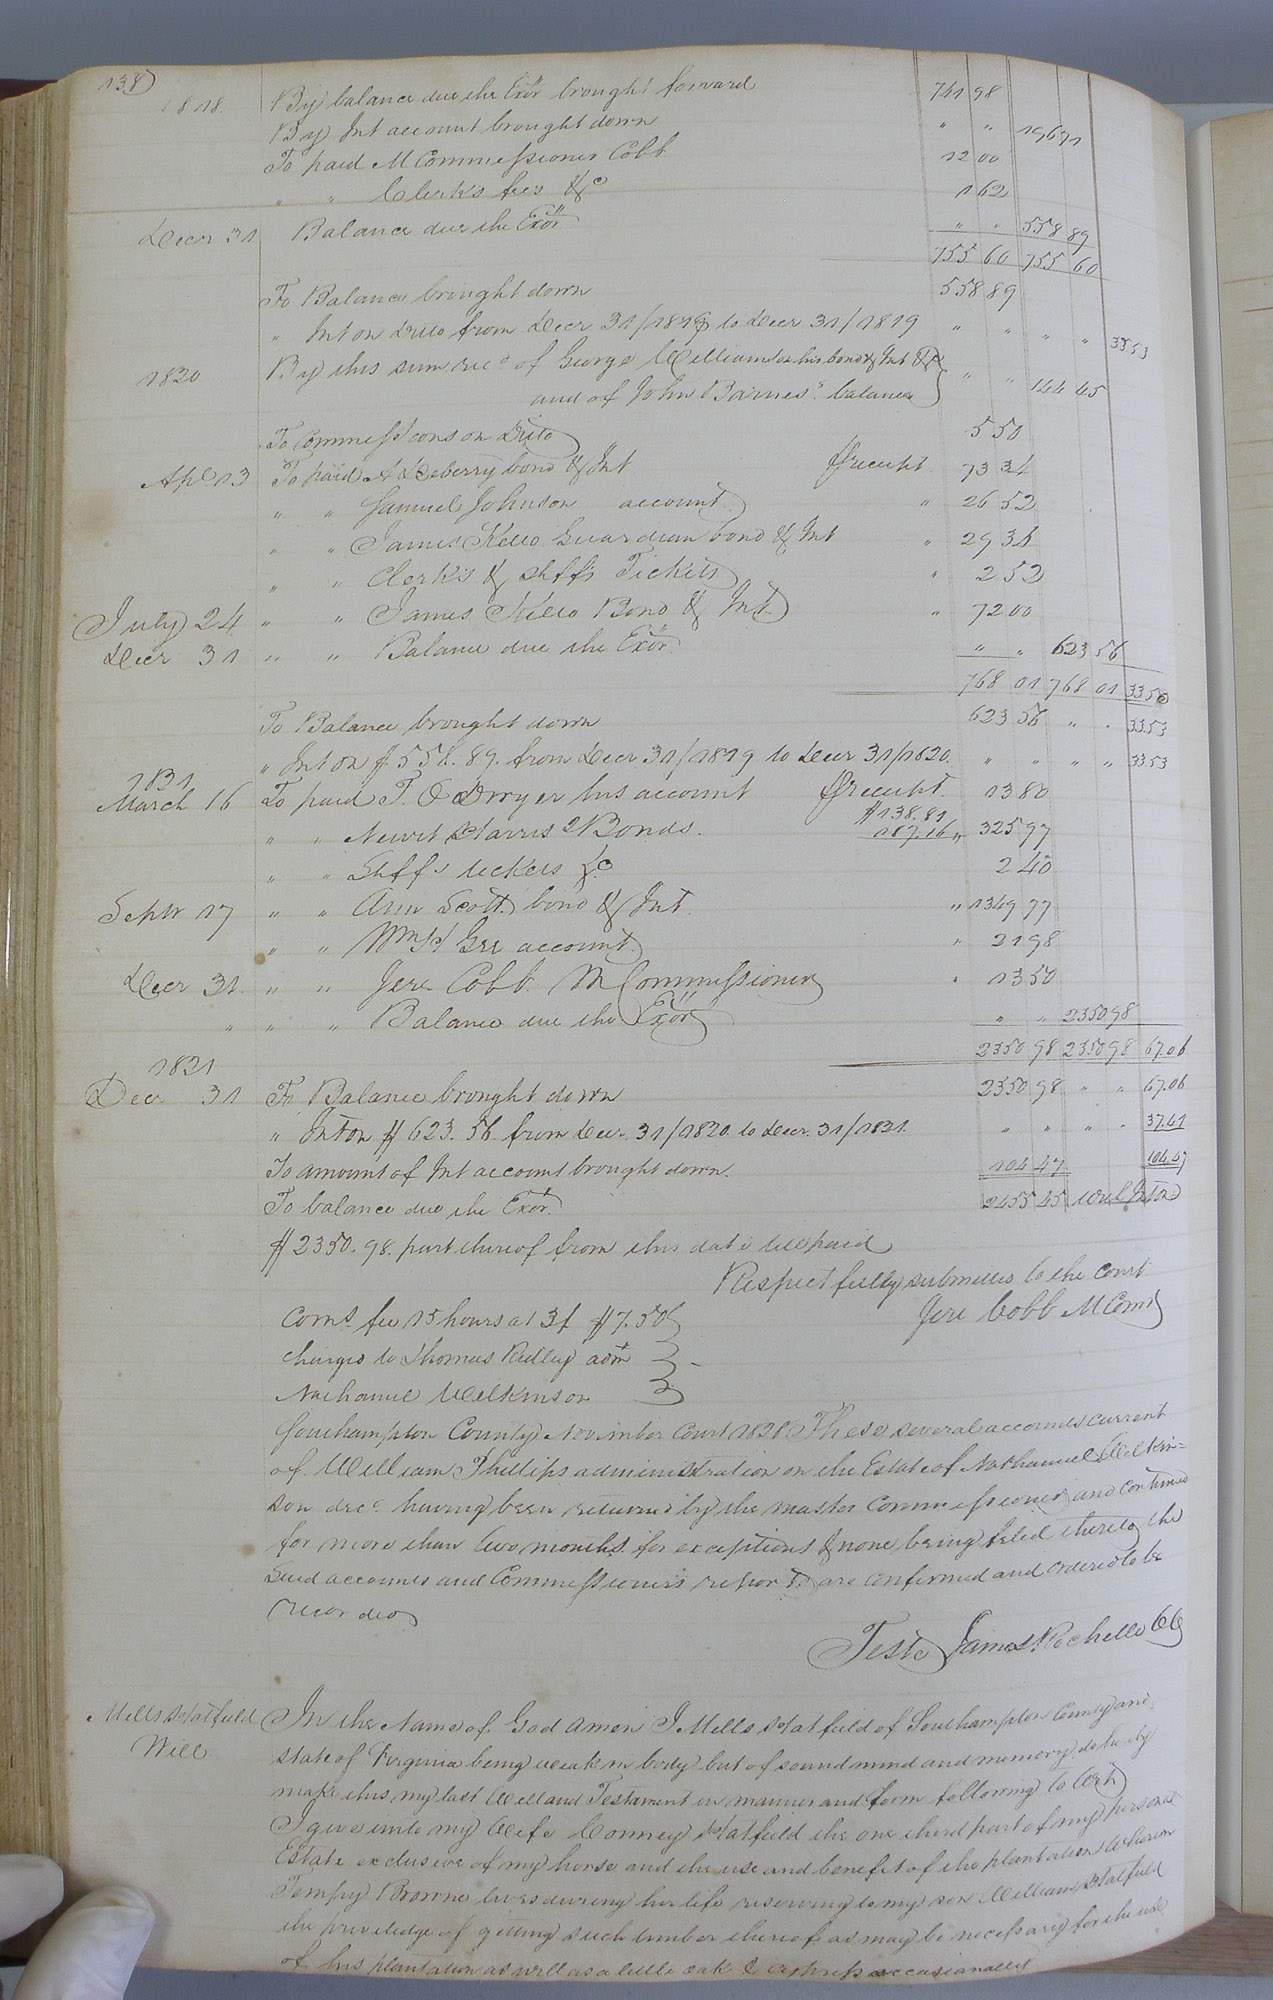 138)
1818. By balance due the Exör brought forward 741 98
By Int account brought down " " 196 71
To paid M Commissioner Cobb 12 00
" " Clerks fees &c 1 62
Decr 31 Balance due the Exör " " 558 89
755 60 755 60
To Balance brought down 558 89
" Int on Ditto from Decr 31/1818 to Decr 31/1819 " " " " 33.53
1820 By this sum recd of George Williamson his bond & Int &c
and of John Barnes' balance " " 144 45
To Commissions on Ditto 5 50
Apl 13 To paid A Deberry bond & Int pr receipt 73 34
" " Samuel Johnson account " 26 52
" " James Kello Guardian bond & Int " 29 34
" " Clerk's & Shff's Tickets " 2 52
July 24 " " James Kello Bond & Int. " 72 00
Decr 31 " " Balance due the Exör. " " 623 56
768 01 768 01 33.53
To Balance brought down 623 56 " " 33.53
" Int on $558.89. from Decr 31/1819 to Decr 31/1820. " " " " 33.53
1821
March 16 To paid T. O Dwyer his account pr receipt. 13 80
" " Newit Harris 2 Bonds. $138.81
187.16 " 325 97
" " Shff's tickets &c 2 40
Septr 17 " " Ann Scott bond & Int. " 1349 77
" " Wm H Gee account " 21 98
Decr 31. " " Jere Cobb M Commissioner " 13 50
" " " Balance due the Exör " " 2350 98
2350 98 2350 98 67.06
1821
Decr 31 To Balance brought down 2350 98 " " 67.06
" Int on $623.56. from Decr. 31/1820. to Decr. 31/1821. " " " " 37.41
To amount of Int account brought down. 104 47 104.47
To balance due the Exor. 2455 45 with Int on
$2350.98. part thereof from this date till paid
Respectfully submitted to the court
Jere Cobb M Comr
Coms. fee 15 hours at 3/ $7.50
charged to Thomas Ridley admr
Nathaniel Wilkinson
Southampton County November Court 1828 These several accounts current
of William Phillips administration on the Estate of Nathaniel Wilkin=
son decd having been returned by the master Commissioner and continued
for more than two months for exceptions & none being filed thereto the
said accounts and Commissioner's reports are confirmed and ordered to be
recorded
Teste James Rochelle CC
Mills Statfield
Will
In the Name of God amen I Mills Statfield of Southampton County and
state of Virginia being weak in body but of sound mind and memory do hereby
make this my last Will and Testament in manner and form following to Wit
I give unto my Wife Conney Statfield the one third part of my personal
Estate exclusive of my horse and the use and benefit of the plantation whereon
Tempy Browne lives during her life reserving to my son William Statfield
the priviledge of getting such timber thereof as may be necessary for the use
of his plantation as well as a little oak & cypress occasionally